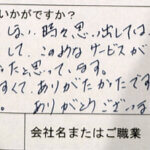 いかがですか？
しまい 時々思い出しては
して、このようなサービスが
かったと思っています。
すくて、ありがたかったです
ありがとうございま
会社名またはご職業